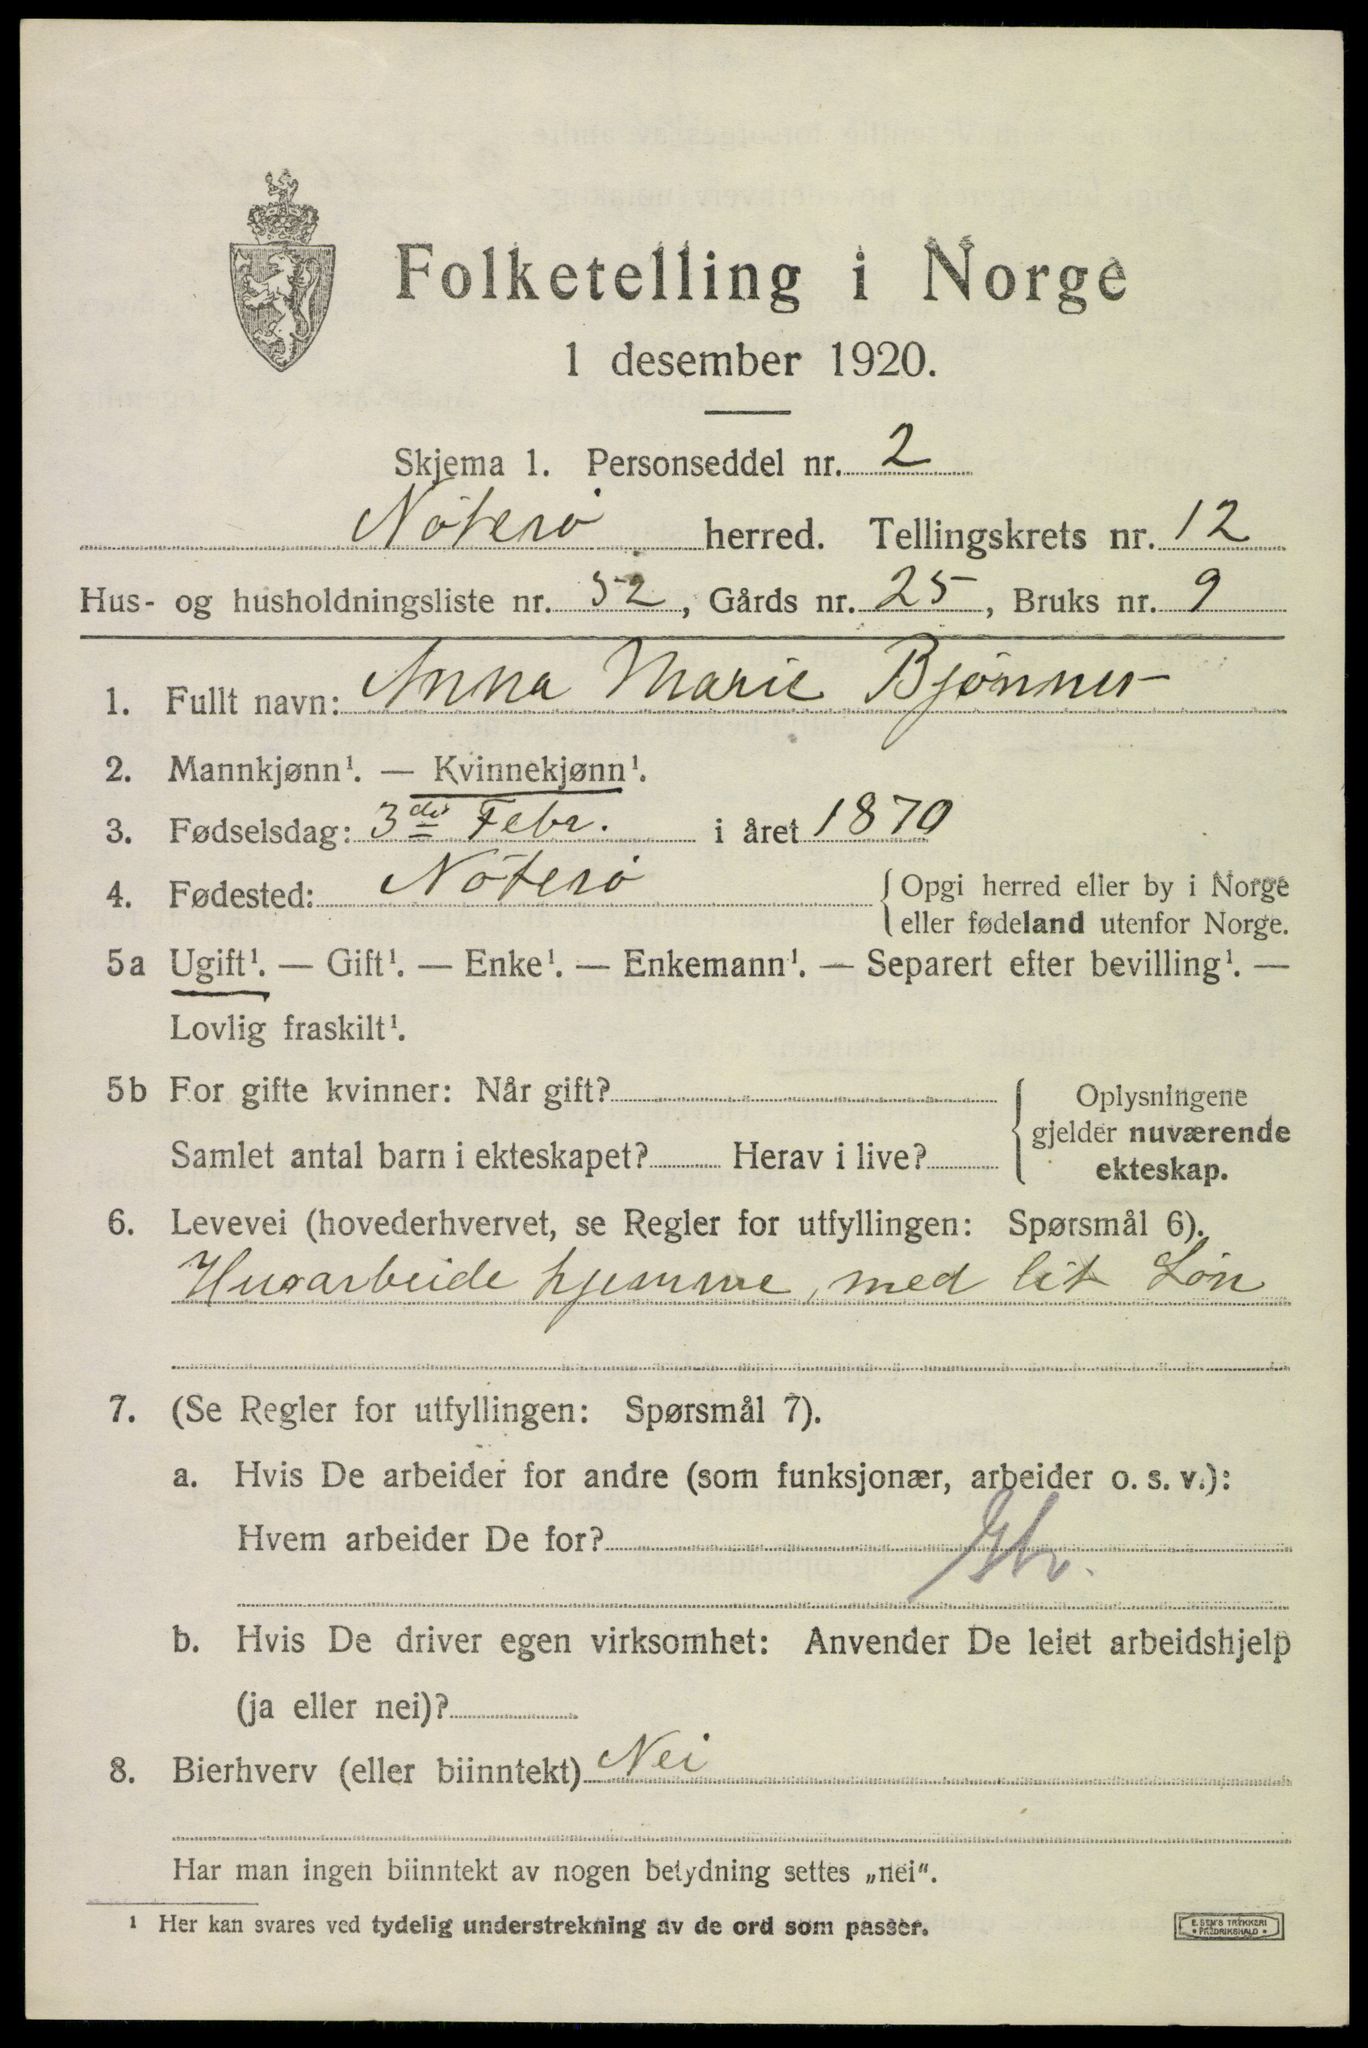 Folketelling i Norge
1 desember 1920.
Skjema 1. Personseddel nr. 2
Nöterö herred. Tellingskrets nr. 12
Hus- og husholdningsliste nr. 52, Gårds nr. 25, Bruks nr. 9
1. Fullt navn: Anna Marie Bjønnes
2. Mannkjønn¹. — Kvinnekjønn¹.
3. Fødselsdag: 3die Febr. i året 1870
4. Fødested: Nöterö { Opgi herred eller by i Norge
eller fødeland utenfor Norge.
5a Ugift¹. — Gift¹. — Enke¹. — Enkemann¹. — Separert efter bevilling¹. —
Lovlig fraskilt¹.
5b For gifte kvinner: Når gift? { Oplysningene
gjelder nuværende
Samlet antal barn i ekteskapet? Herav i live?
ekteskap.
6. Levevei (hovederhvervet, se Regler for utfyllingen: Spørsmål 6).
Husarbeide hjemme, med lit Lön
7. (Se Regler for utfyllingen: Spørsmål 7).
a. Hvis De arbeider for andre (som funksjonær, arbeider o. s. v.):
Hvem arbeider De for?
b. Hvis De driver egen virksomhet: Anvender De leiet arbeidshjelp
(ja eller nei)?
8. Bierhverv (eller biinntekt) Nei
Har man ingen biinntekt av nogen betydning settes „nei“.
¹ Her kan svares ved tydelig understrekning av de ord som passer.
E. SEM'S TRYKKERI
* FREDRIKSHALD *